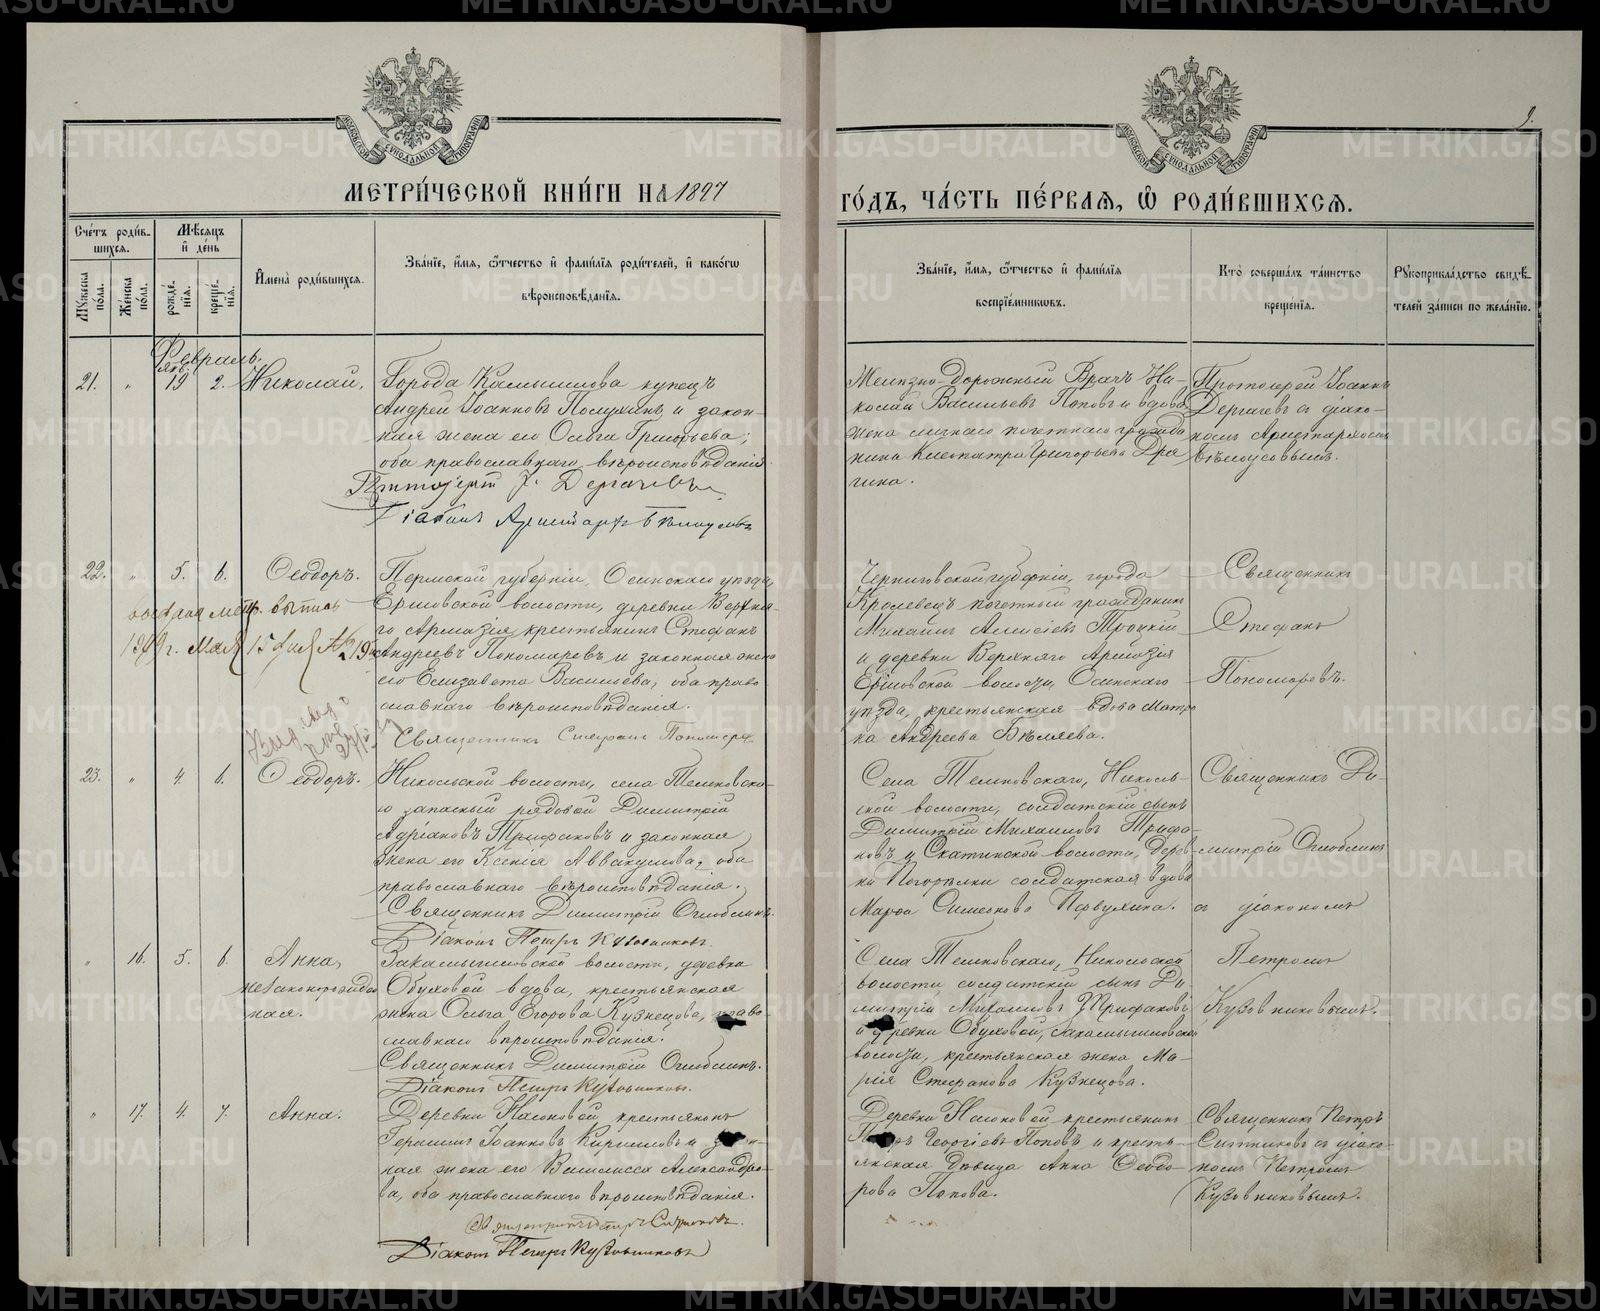 МЕТРИ́ЧЕСКОЙ КНИ́ГИ НА 1897
ГО́ДЪ, ЧА́СТЬ ПЕ́РВАѦ, Ѡ҆ РОДИ́ВШИХСѦ.
9.
МОСКОВСКОЙ СѴНОДАЛЬНОЙ ТИПОГРАФІИ
МОСКОВСКОЙ СѴНОДАЛЬНОЙ ТИПОГРАФІИ
Сче́тъ роди́в-
шихсѧ.
Му́жеска по́ла.
Же́нска по́ла.
Мѣ́сѧцъ
и҆ де́нь
рожде́-
нїѧ.
креще́-
нїѧ.
И҆мена̀ роди́вшихсѧ.
Зва́нїе, и҆́мѧ, ѻ҆́тчество и҆ фами́лїѧ роди́телей, и҆ како́гѡ
вѣроисповѣ́данїѧ.
Зва́нїе, и҆́мѧ, ѻ҆́тчество и҆ фами́лїѧ
воспрїе́мникѡвъ.
Кто̀ соверша́лъ та́инство
креще́нїѧ.
Рꙋкоприкла́дство свидѣ́-
телей за́писи по жела́нїю.
Февраль.
янв.
21. " 19 2. Николай,
Города Камышлова купецъ
Андрей Іоанновъ Полухинъ и закон-
ная жена его Ольга Григорьева;
оба православнаго вѣроисповѣданія.
Протоіерей І. Дергачевъ
Діаконъ Аристархъ Бѣлоусовъ
Желѣзно-дорожный Врачъ Ни-
колай Васильевъ Поповъ и вдова
жена личнаго почетнаго гражда
нина Клеопатра Григорьева
гина.
Протоіерей Іоаннъ
Дергачевъ съ діако-
номъ Аристархомъ
Бѣлоусовымъ.
22. " 5. 6. Ѳеодоръ.
Пермской губерніи, Осинскаго уѣзда,
Ершовской волости, деревни Верхня-
го Армязія крестьянинъ Стефанъ
Андреевъ Пономаревъ и законная жена
его Елизавета Васильева, оба право
славнаго вѣроисповѣданія.
Священникъ Стефанъ Пономарев
метр. выпись
г. Мая 15 дня №
Черниговской губерніи, города
Кролевецъ почетный гражданинъ
Михаилъ Алексіевъ Троцкій
и деревни Верхняго Армязія
Ершовской волости Осинскаго
уѣзда, крестьянская вдова Матре
на Андреева Бѣляева.
Священникъ
Стефанъ
Пономаревъ.
23. " 4 6. Ѳеодоръ.
Никольской волости, села Темновска-
го запасный рядовой Димитрій
Адріановъ Трифановъ и законная
жена его Ксенія Аввакумова, оба
православнаго вѣроисповѣданія.
Священникъ Димитрій Оглоблинъ.
Діаконъ Петръ Кузовниковъ.
Села Темновскаго, Николь-
ской волости, солдатскій сынъ
Димитрій Михаиловъ Трифа-
новъ и Скатинской волости, дерев-
ни Погорѣлки солдатская вдова
Марѳа Симеонова Первухина.
Священникъ Ди-
митрій Оглоблинъ
съ діакономъ
" 16. 5. 6. Анна,
незаконорожден
ная.
Закамышловской волости, деревни
Обуховой вдова, крестьянская
жена Ольга Егорова Кузнецова, право-
славнаго вѣроисповѣданія.
Священникъ Димитрій Оглоблинъ.
Діаконъ Петръ Кузовниковъ.
Села Темновскаго, Никольской
волости солдатскій сынъ Ди-
митрій Михаиловъ Трифановъ
и деревни Обуховой, Закамышловской
волости, крестьянская жена Ма-
рія Стефанова Кузнецова.
Петромъ
Кузовниковымъ.
" 17. 4. 7. Анна.
Деревни Насоновой крестьянинъ
Герасимъ Іоанновъ Кириловъ и закон-
ная жена его Василисса Александро-
ва, оба православнаго вѣроисповѣданія.
Священникъ Петръ Ситниковъ.
Діаконъ Петръ Кузовниковъ
Деревни Насоновой крестьянинъ
Петръ Георгіевъ Поповъ и кресть-
янская дѣвица Анна Ѳеодо-
рова Попова.
Священникъ Петръ
Ситниковъ съ діако-
номъ Петромъ
Кузовниковымъ.
METRIKI.GASO-URAL.RU